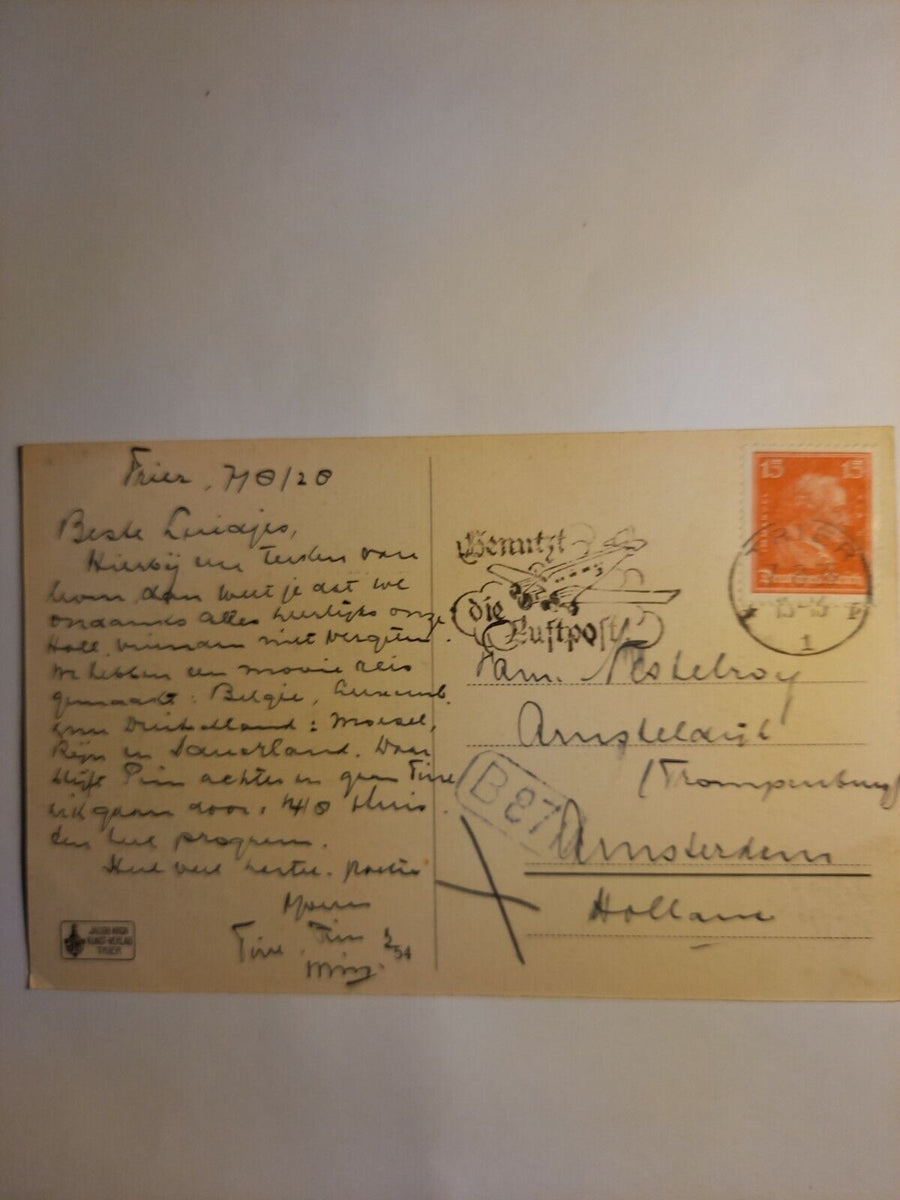 Trier, 7/8/28
Beste Luidjes,
Hierbij een teeken van
dan weet je dat we
ondanks alles heerlijks onze
Holl. vrienden niet vergeten.
We hebben een mooie reis
gemaakt: België, Luxemb.
en Duitschland: Moesel,
Rijn en Sauerland. Daar
blijft Pim achter en gaan Tine
en ik gaan door. 14/8 thuis
den heel program.
Heel veel hartel. groeten
Tine, Pim
JACOB KOCH
KUNST-VERLAG
TRIER
2/54
15 15
Deutsches Reich
TRIER
15-16
1
Benutzt
die
Luftpost
Fam. Nestelroy
Amsteldijk
(Trompenburg)
B 87
Amsterdam
Holland